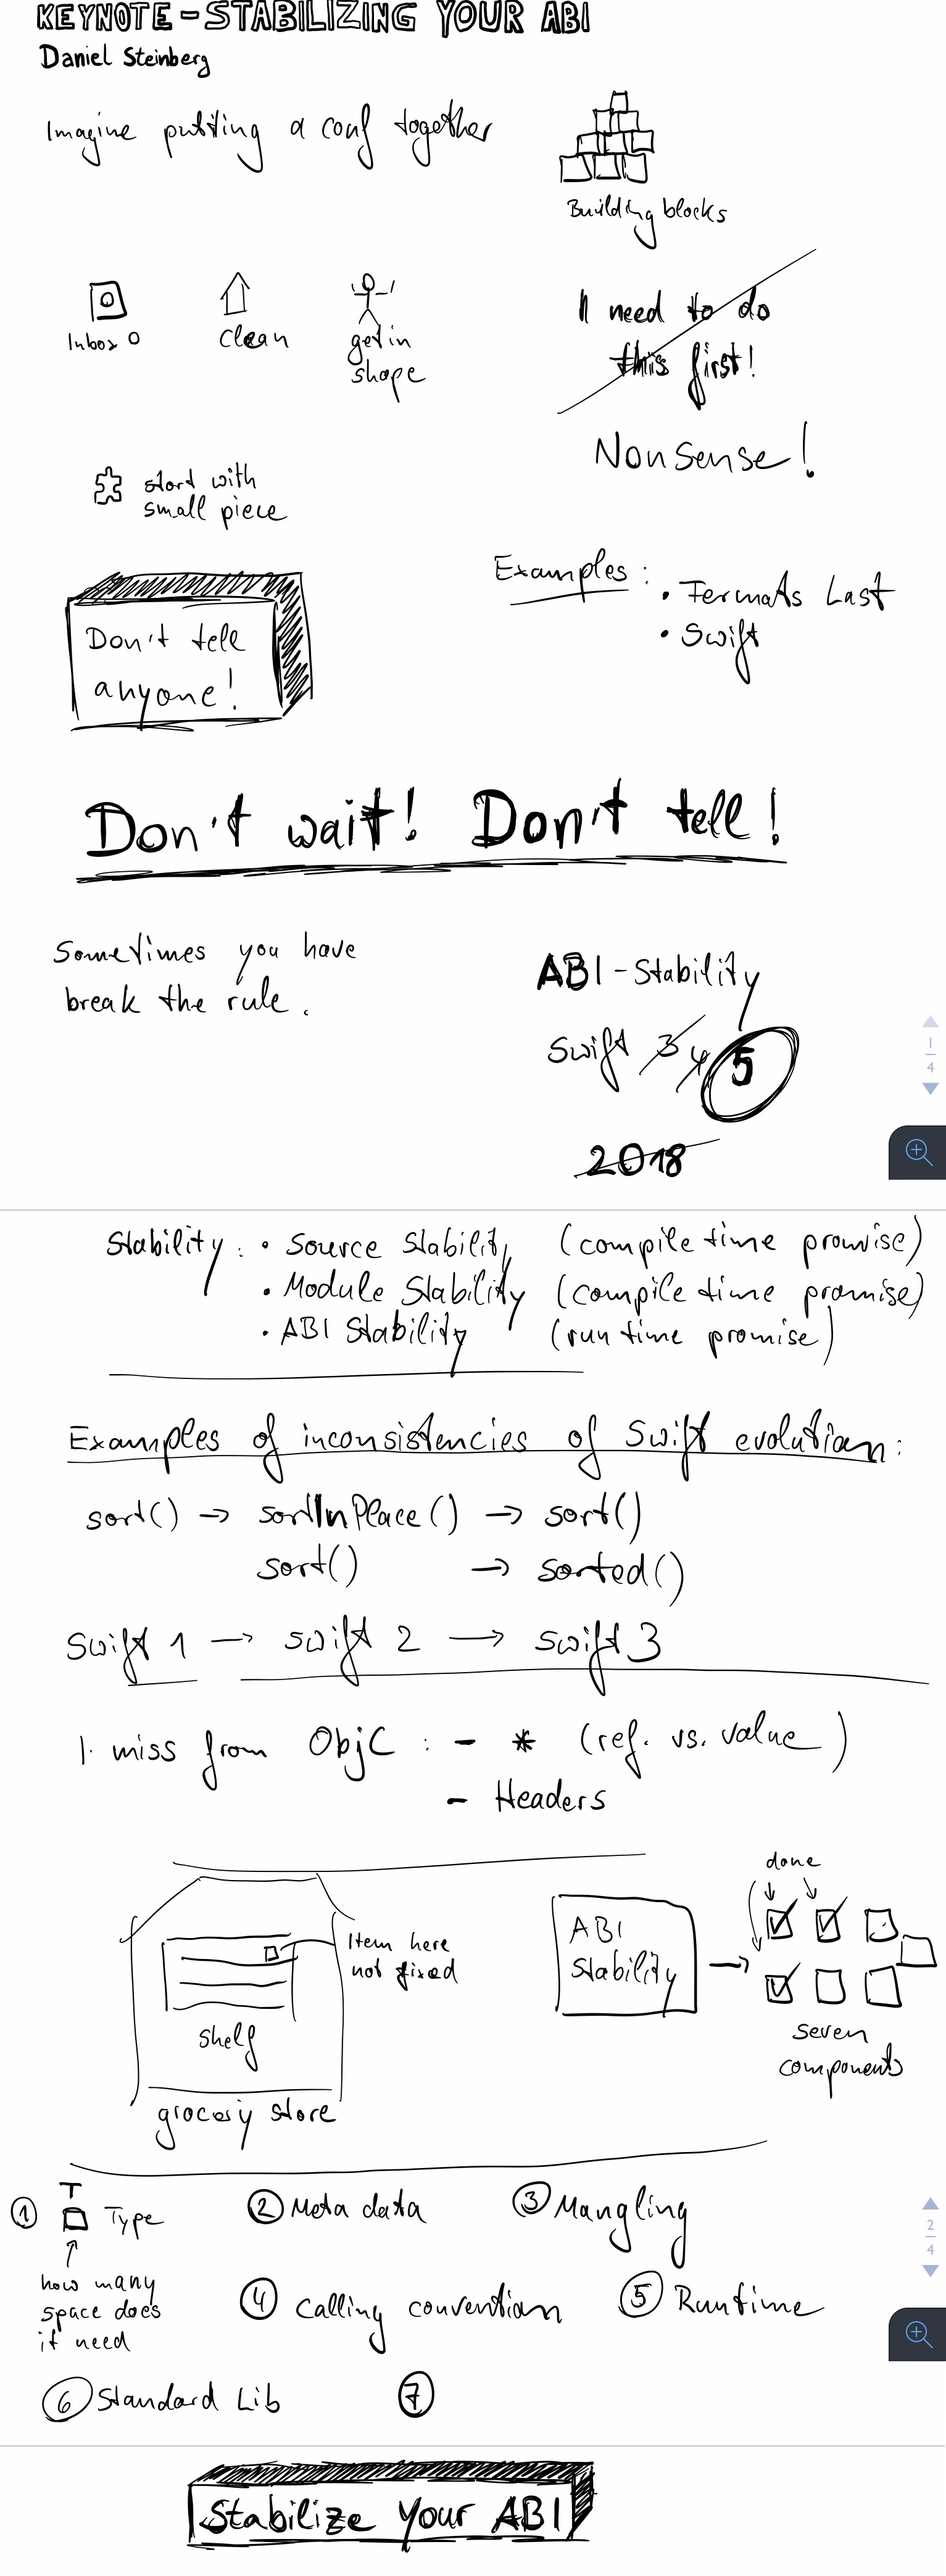 KEYNOTE - STABILIZING YOUR ABI
Daniel Steinberg
Imagine putting a conf together
Building blocks
Inbox 0
clean
get in
shape
I need to do
this first!
Nonsense!
start with
small piece
Examples:
• Fermats Last
• Swift
Don't tell
anyone!
Don't wait! Don't tell!
Sometimes you have
break the rule.
ABI - Stability
Swift 3 4 5
2018
1
4
Stability: • Source Stability (compile time promise)
• Module Stability (compile time promise)
• ABI Stability (run time promise)
Examples of inconsistencies of Swift evolution:
sort() → sortInPlace() → sort()
sort() → sorted()
Swift 1 → swift 2 → swift 3
I miss from ObjC: - * (ref. vs. value)
- Headers
done
Item here
not fixed
shelf
grocery store
ABI
Stability
→
seven
components
① T Type
how many
space does
it need
② Meta data
③ Mangling
2
4
④ calling convention
⑤ Runtime
⑥ Standard Lib
⑦
Stabilize your ABI